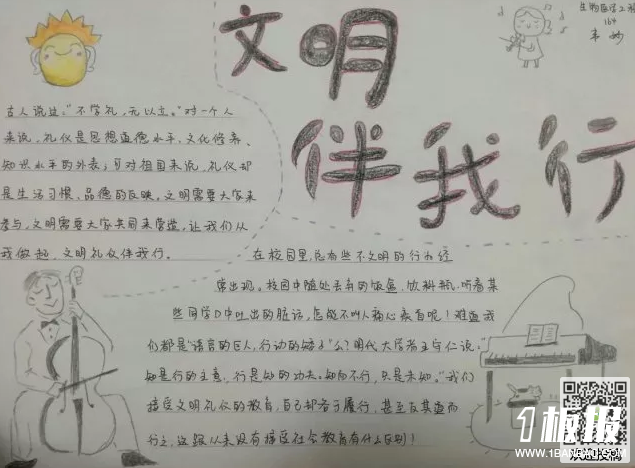 文明
伴我行
生物医学工程
164
古人说过:“不学礼，无以立。”对一个人
来说，礼仪是思想道德水平、文化修养、
知识水平的外表；可对祖国来说，礼仪却
是生活习惯、品德的反映，文明需要大家来
参与，文明需要大家共同来营造，让我们从
我做起，文明礼仪伴我行。
在校园里，总有些不文明的行为经
常出现。校园中随处丢弃的饭盒，饮料瓶，听着某
些同学口中吐出的脏话，怎能不叫人痛心疾首呢！难道我
们都是“语言的巨人，行动的矮子”么？明代大学者王守仁说：“
知是行的主意，行是知的功夫。知而不行，只是未知。”我们
接受文明礼仪的教育，自己却吝于履行，甚至反其道而
行之，这跟从来没有接受社会教育有什么区别！
1板报
WWW.1BANBAO.COM
欢迎投稿